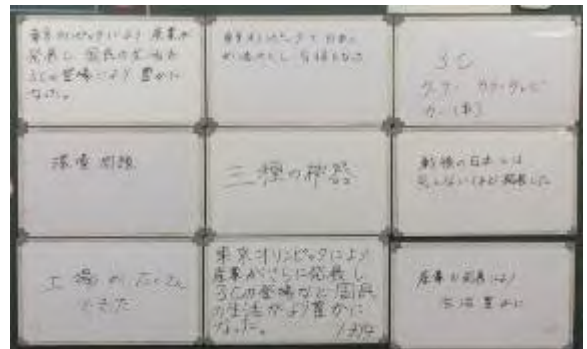 東京オリンピックにより産業が
発展し国民の生活も
3Cの登場により豊かに
なった。
東京オリンピックで日本に
3C
クーラー カラーテレビ
カー(車)
環境問題
三種の神器
戦後の日本とは
思えないくらい発展した
工場がたくさん
できた
東京オリンピックにより
産業がさらに発展し
3Cの登場など国民
の生活がより豊かに
なった。
産業の発展により
生活豊かに